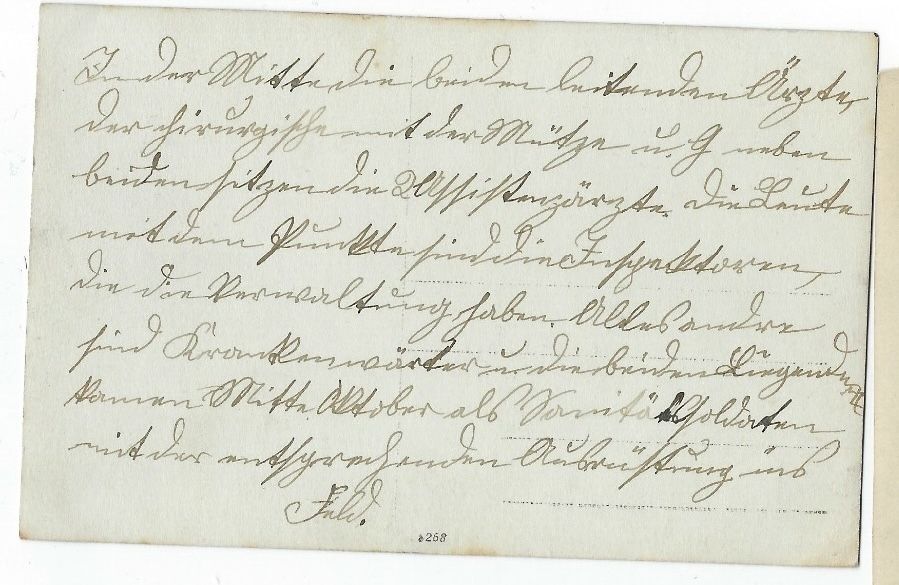 In der Mitte die beiden leitenden Ärzte,
der chirurgische mit der Mütze u. G neben
beiden sitzen die Assistenzärzte. Die Leute
mit dem Punkte sind die Inspektoren,
die die Verwaltung haben. Alles andre
sind Krankenwärter u. die beiden Liegenden
kamen Mitte Oktober als Sanitätssoldaten
mit der entsprechenden Ausrüstung ins
Feld.
6258